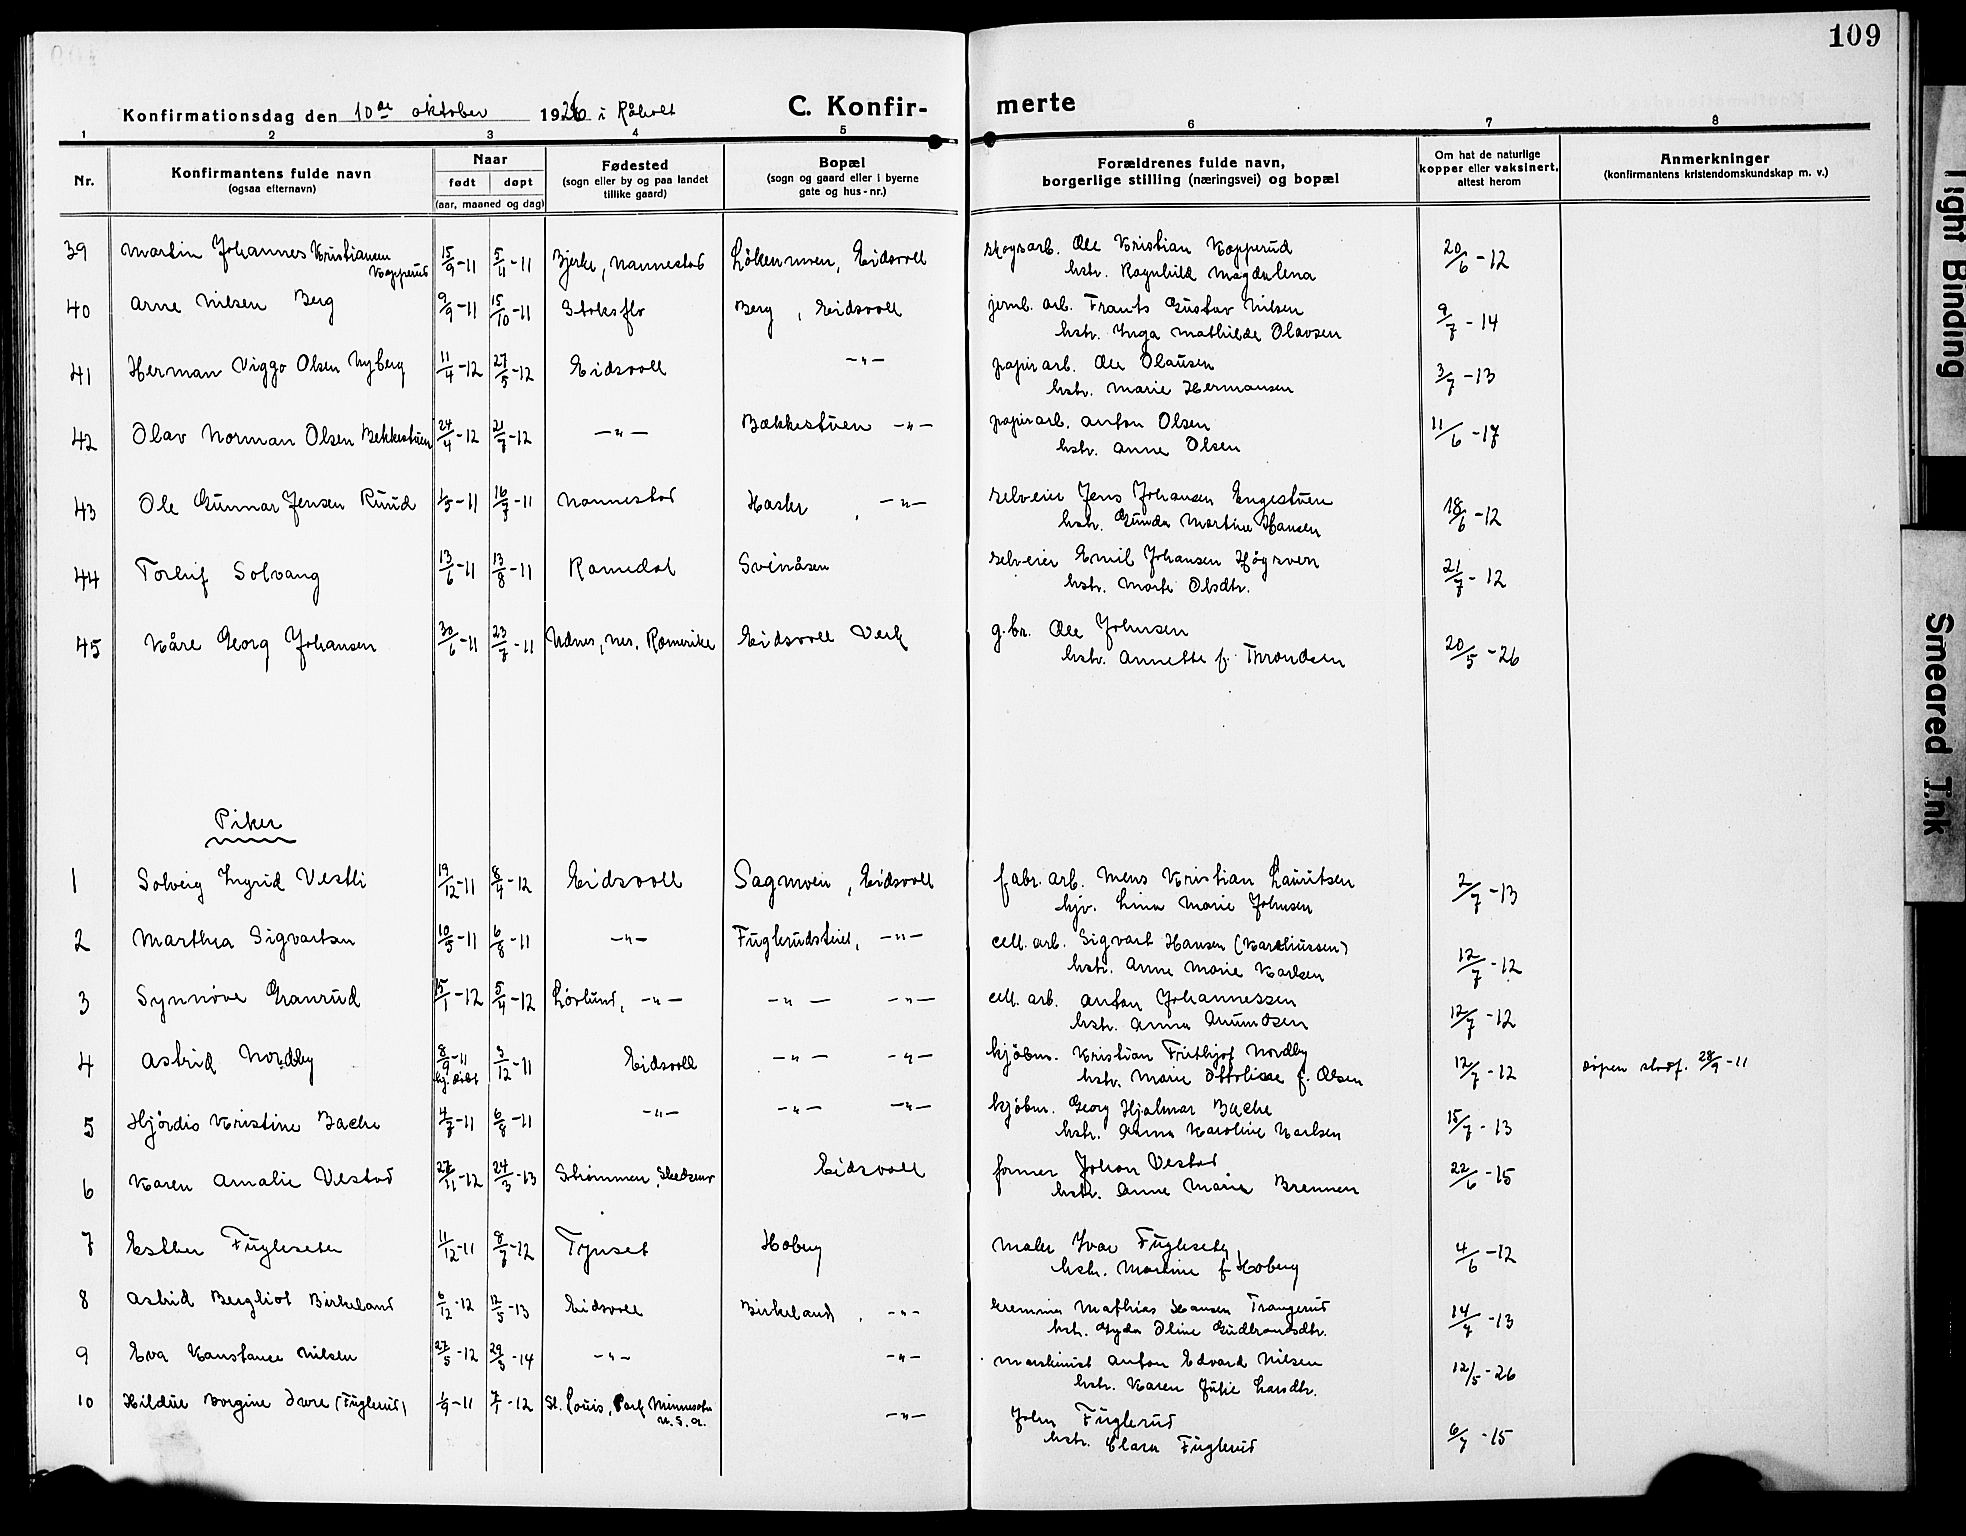 109
Konfirmationsdag den 10de oktober 1926 i Råholt
C. Konfirmerte
1 2 3 4 5 6 7 8
Nr.
Konfirmantens fulde navn
(ogsaa efternavn)
Naar
født døpt
(aar, maaned og dag)
Fødested
(sogn eller by og paa landet
tillike gaard)
Bopæl
(sogn og gaard eller i byerne
gate og hus-nr.)
Forældrenes fulde navn,
borgerlige stilling (næringsvei) og bopæl
Om hat de naturlige
kopper eller vaksinert,
attest herom
Anmerkninger
(konfirmantens kristendomskundskap m. v.)
39 Martin Johannes Kristiansen Kopperud 15/9-11 5/11-11 Bjerke, Nannestad Løkenmoen, Eidsvoll skogsarb. Ole Kristian Kopperud 20/6-12
hstr. Ragnhild Magdalena
40 Arne Nilsen Berg 9/9-11 15/10-11 Berg, Eidsvoll jernb. arb. Frants Gustav Nilsen 9/7-14
hstr. Inga Mathilde Olavsen
41 Herman Viggo Olsen Nyberg 11/4-12 27/5-12 Eidsvoll -"- papirarb. Ole Olausen 3/7-13
hstr. Marie Hermansen
42 Olav Norman Olsen Bekkestuen 24/4-12 21/7-12 -"- Bækkestuen -"- papirarb. Anton Olsen 11/6-17
hstr. Anne Olsen
43 Ole Gunnar Jensen Ruud 16/7-11 Nannestad Hasler, -"- selveier Jens Johansen Engestuen 18/6-12
hstr. Gunda Martine Hansen
44 Torleif Solvang 13/6-11 13/8-11 Romedal Svinåsen selveier Emil Johansen 21/7-12
hstr. Marte Olsdtr.
45 Kåre Georg Johansen 30/6-11 23/7-11 Udnes, Nes, Romerike Eidsvoll Verk g.br. Ole Johnsen 20/5-26
hstr. Annette f. Throndsen
Piker
1 Solveig Ingrid Vestli 19/12-11 8/4-12 Eidsvoll Sagmoen, Eidsvoll fabr. arb. Mens Kristian Lauritsen 2/7-13
hjv. Lina Marie Johnsen
2 Marthea Sigvartsen 10/5-11 6/8-11 -"- Fuglerudsteiet, -"- cell. arb. Sigvart Hansen (Kareliussen) 12/7-12
hstr. Anne Marie Karlsen
3 Synnøve Granrud 15/1-12 5/4-12 Lørlund, -"- -"- -"- cell. arb. Anton Johannessen 12/7-12
hstr. Anna Amundsen
4 Astrid Nordby 8/9-11 hj. døbt 3/12-11 Eidsvoll -"- -"- kjøbm. Kristian Frithjof Nordby 12/7-12 dåpen stadf. 28/9-11
hstr. Marie Ottolise f. Olsen
5 Hjørdis Kristine Bache 4/7-11 6/8-11 -"- -"- -"- kjøbm. Georg Hjalmar Bache 15/7-13
hstr. Anna Karoline Karlsen
6 Karen Amalie Vestad 27/11-12 24/3-13 Strømmen, Skedsmo Eidsvoll former Johan Vestad 22/6-15
hstr. Anne Marie Brennen
7 Esther Fugleseter 11/12-11 8/7-12 Tynset Hoberg Maler Ivar Fugleseter 4/6-12
hstr. Martine f. Hoberg
8 Astrid Bergliot Birkeland 6/12-12 12/5-13 Eidsvoll Birkeland, -"- kremmer Mathias Hansen Trangerud 14/7-13
hstr. Gyda Oline Gudbrandsdtr.
9 Eva Konstance Nilsen 27/5-12 29/3-14 -"- -"- Maskinist Anton Edvard Nilsen 12/5-26
hstr. Karen Julie Larsdtr.
10 Hildur Borgine (Fuglerud) 1/9-11 7/1-12 St. Louis, Park Minnesota U.S.A. -"- John Fuglerud 6/7-15
hstr. Clara Fuglerud
Tight Binding
Smeared Ink